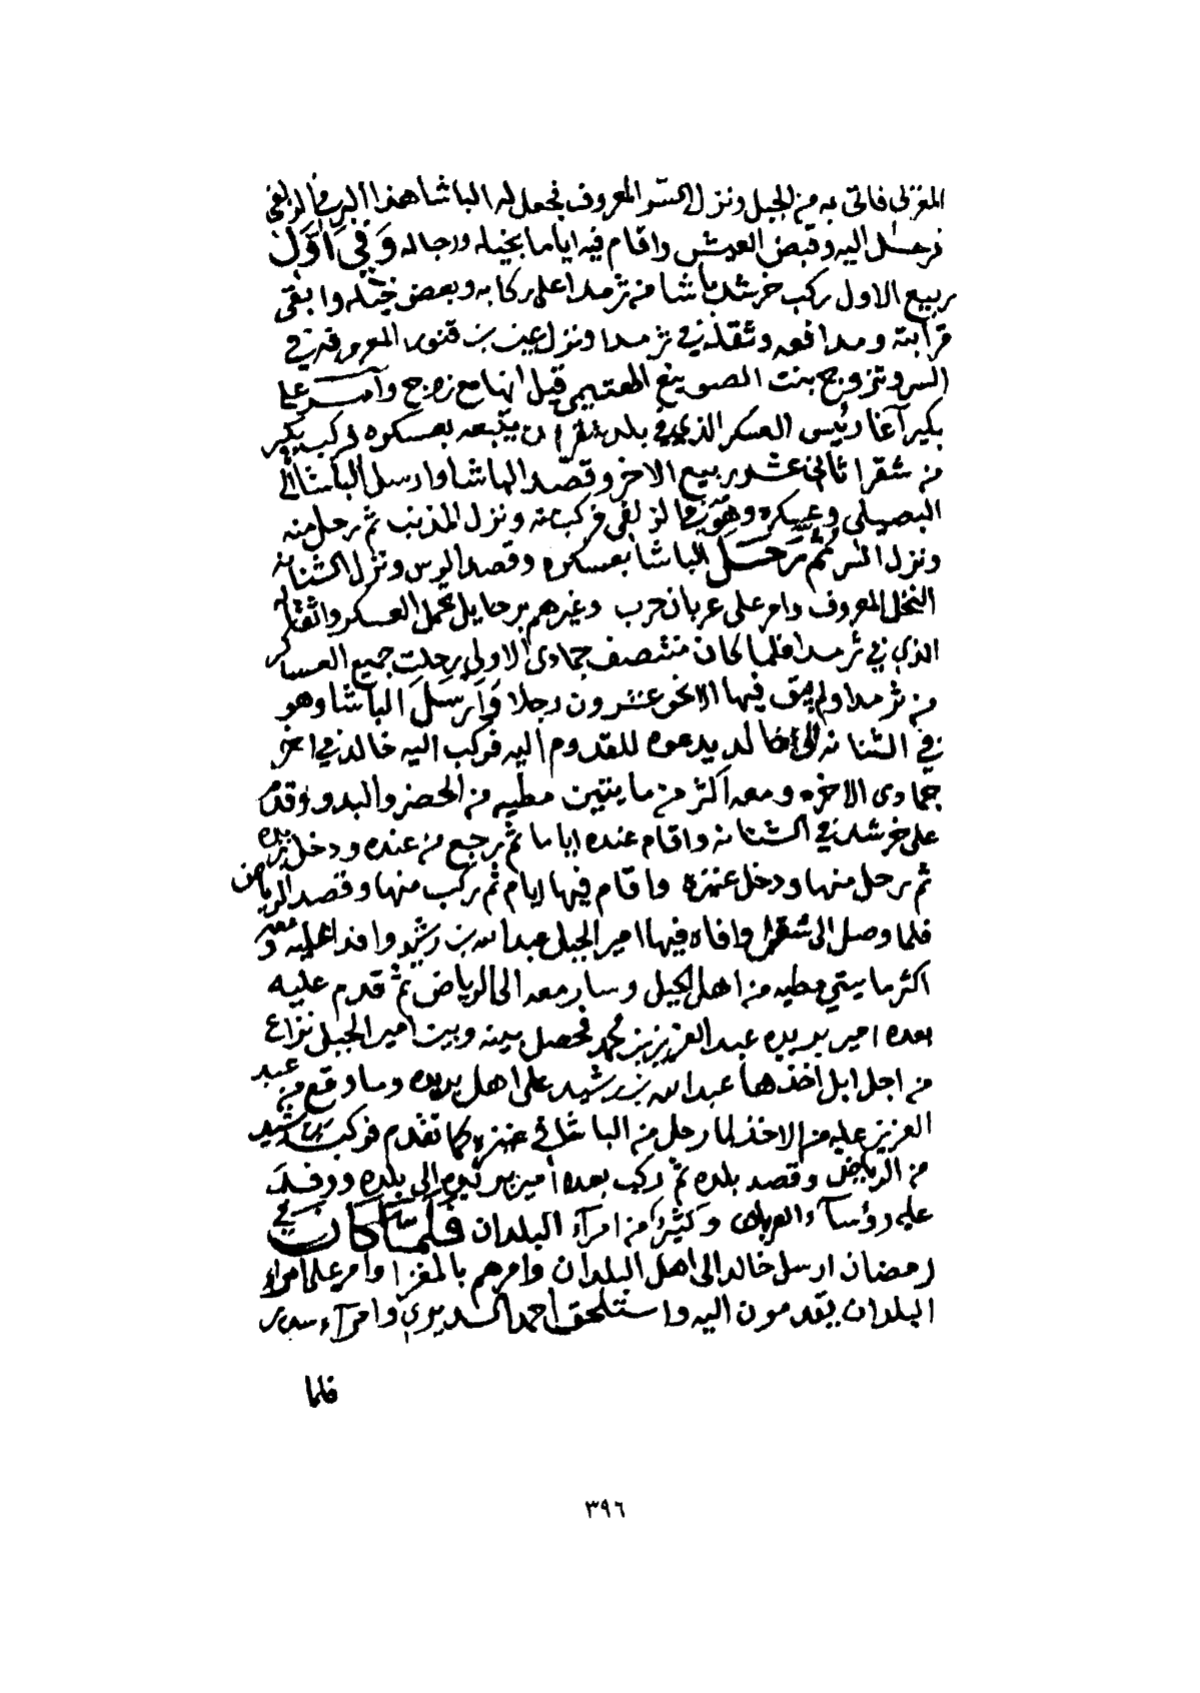 المغزلي فاتى به من الجبل ونزل السر المعروف فجعل له الباشا هذا البر في الزلفي
فرحل اليه وقبض العيش واقام فيه اياما بخيله ورجاله وَفي اَوَّل
ربيع الاول ركب خرشد باشا من ثرمدا على ركابه وبعض خيله وابقى
قرابته ومدافعه وثقله في ثرمدا ونزل عين بن قنور المعروفة في
السر وتزوج بنت الصوينع المعتيبي قيل انها مع زوج وآمر على
بكير آغا رئيس العسكر الذي في بلد شقرا ان يتبعه بعسكره فركب بكير
من شقرا ثاني عشر ربيع الاخر وقصد الباشا وارسل الباشا الى
البصيلي وعسكره وهو في الزلفي فركب منه ونزل المذنب ثم رحل منه
ونزل السر ثم رَحَل الباشا بعسكره وقصد الرس ونزل الشنانه
النخل المعروف وامر على عربان حرب وغيرهم برحايل تحمل العسكر واثقاله
الذي في ثرمدا فلما كان منتصف جمادى الاولى رحلت جميع العساكر
من ثرمدا ولم يبق فيها الا نحو عشرون رجلا وَاَرسَلَ الباشا وهو
في الشنانه الى خالد يدعوه للقدوم اليه فركب اليه خالد في اخر
جمادى الاخره ومعه اكثر من مايتين مطيه من الحضر والبدو وقدم
على خرشد في الشنانه واقام عنده اياما ثم رجع من عنده ودخل بريده
ثم رحل منها ودخل عنيزه واقام فيها ايام ثم ركب منها وقصد الرياض
فلما وصل الى شقرا وافاه فيها امير الجبل عبدالله بن رشيد وافدا عليه ومعه
اكثر مايتي مطيه من اهل الجبل وسار معه الى الرياض ثم قدم عليه
بعده امير بريده عبد العزيز بن محمد فحصل بينه وبين امير الجبل نزاع
من اجل ابل اخذها عبدالله بن رشيد على اهل بريده وما وقع من عبد
العزيز عليه من الاخذ لما رحل من الباشا في عنيزه كما تقدم فركب بن رشيد
من الرياض وقصد بلده ثم ركب بعده امير بريده الى بلده ووفد
عليه رؤسآء العربان وكثير من امرآء البلدان فَلَمَّا كَانَ في
رمضان ارسل خالد الى اهل البلدان وامرهم بالمغزا وامر على امراء
البلدان يقدمون اليه واستلحق احمد السديري وامرآء سدير
فلما
٣٩٦